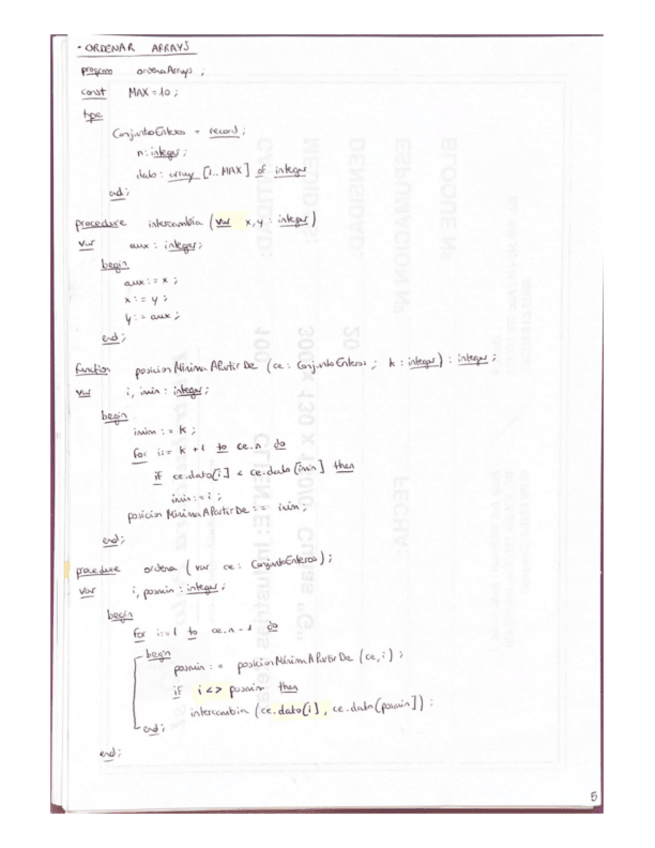 · ORDENAR ARRAYS
program ordenaArrays;
const MAX=10;
type
ConjuntoEnteros = record;
n: integer;
dato: array [1..MAX] of integer
end;
procedure intercambia (var x,y: integer)
var aux: integer;
begin
aux:=x;
x:=y;
y:=aux;
end;
function posicionMinimaAPartirDe (ce: ConjuntoEnteros; k: integer): integer;
var i, imin: integer;
begin
imin:=k;
for i:= k+1 to ce.n do
if ce.dato[i] < ce.dato[imin] then
imin:=i;
posicionMinimaAPartirDe:= imin;
end;
procedure ordena (var ce: ConjuntoEnteros);
var i, posmin: integer;
begin
for i:=1 to ce.n-1 do
begin
posmin:= posicionMinimaAPartirDe (ce,i);
if i<> posmin then
intercambia (ce.dato[i], ce.dato[posmin]);
end;
end;
5
BLOQUE Nº
ESPUMACION Nº
FECHA:
DENSIDAD: 20
MEDIDAS: 300 x 130 x
CANTIDAD: 100
CLIENTE: Industrias